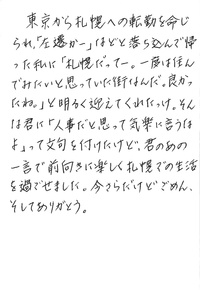 東京から札幌への転勤を命じ
られ、「左遷かー」などと落ち込んで帰
った私に「札幌だってー。一度は住ん
でみたいと思っていた街なんだ。良かっ
たね。」と明るく迎えてくれたっけ。そん
な君に「人事だと思って気楽に言うな
よ」って文句を付けたけど、君のあの
一言で前向きに楽しく札幌での生活
を過ごせました。今さらだけどごめん、
そしてありがとう。